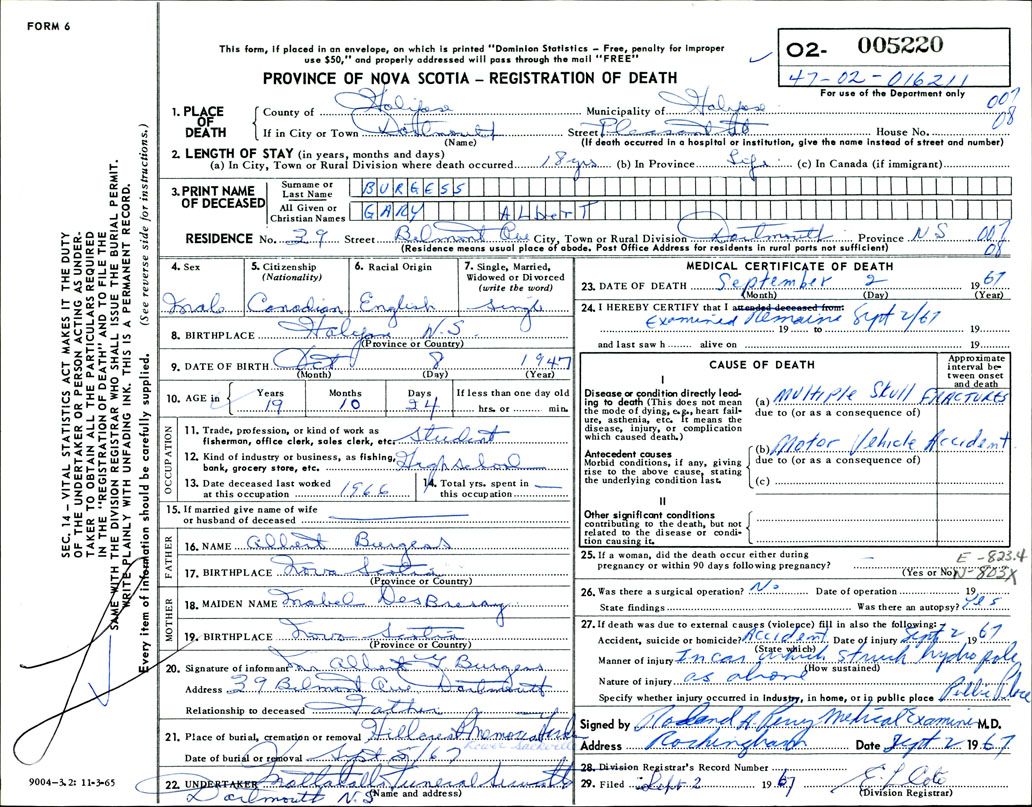 FORM 6
This form, if placed in an envelope, on which is printed "Dominion Statistics – Free, penalty for improper
use $50," and properly addressed will pass through the mail "FREE"
PROVINCE OF NOVA SCOTIA – REGISTRATION OF DEATH
O2- 005220
47-02-016211
For use of the Department only
007
08
1. PLACE OF DEATH
County of Halifax Municipality of Halifax
If in City or Town Dartmouth Street Pleasant St House No.
(Name) (If death occurred in a hospital or institution, give the name instead of street and number)
2. LENGTH OF STAY (in years, months and days)
(a) In City, Town or Rural Division where death occurred 18 yrs (b) In Province Life (c) In Canada (if immigrant)
3. PRINT NAME OF DECEASED
Surname or Last Name BURGESS
All Given or Christian Names GARY AlberT
RESIDENCE No. 39 Street Belmont Ave City, Town or Rural Division Dartmouth Province NS
007
08
(Residence means usual place of abode. Post Office Address for residents in rural parts not sufficient)
4. Sex
Male
5. Citizenship
(Nationality)
Canadian
6. Racial Origin
English
7. Single, Married,
Widowed or Divorced
(write the word)
Single
8. BIRTHPLACE Halifax N.S
(Province or Country)
9. DATE OF BIRTH Oct 8 1947
(Month) (Day) (Year)
10. AGE in
Years 19
Months 10
Days 24
If less than one day old
hrs. or min.
OCCUPATION
11. Trade, profession, or kind of work as
fisherman, office clerk, sales clerk, etc. Student
12. Kind of industry or business, as fishing,
bank, grocery store, etc. High school
13. Date deceased last worked
at this occupation 1966
14. Total yrs. spent in
this occupation
15. If married give name of wife
or husband of deceased
FATHER
16. NAME Albert Burgess
17. BIRTHPLACE Nova Scotia
(Province or Country)
MOTHER
18. MAIDEN NAME Mabel DesBresay
19. BIRTHPLACE Nova Scotia
(Province or Country)
20. Signature of informant Mr Albert G Burgess
Address 39 Belmont Ave Dartmouth
Relationship to deceased Father
21. Place of burial, cremation or removal Hillcrest Memorial Park
Lower Sackville
Date of burial or removal Sept 5/67
22. UNDERTAKER Mattatall Funeral
Dartmouth N.S (Name and address)
MEDICAL CERTIFICATE OF DEATH
23. DATE OF DEATH September 2 1967
(Month) (Day) (Year)
24. I HEREBY CERTIFY that I attended deceased from:
Examined Remains Sept 2/67
19 to 19
and last saw h alive on 19
CAUSE OF DEATH
Approximate
interval be-
tween onset
and death
I
Disease or condition directly lead-
ing to death (This does not mean
the mode of dying, e.g., heart fail-
ure, asthenia, etc. It means the
disease, injury, or complication
which caused death.)
(a) Multiple Skull FRACTURES
due to (or as a consequence of)
Antecedent causes
Morbid conditions, if any, giving
rise to the above cause, stating
the underlying condition last.
(b) Motor Vehicle Accident
due to (or as a consequence of)
(c)
II
Other significant conditions
contributing to the death, but not
related to the disease or condi-
tion causing it.
25. If a woman, did the death occur either during
pregnancy or within 90 days following pregnancy?
(Yes or No)
E-823.4
N-803X
26. Was there a surgical operation? No Date of operation 19
State findings Was there an autopsy? Yes
27. If death was due to external causes (violence) fill in also the following:
Accident, suicide or homicide? Accident Date of injury Sept 2 1967
(State which)
Manner of injury In car which struck hydro pole
(How sustained)
Nature of injury as above
Specify whether injury occurred in industry, in home, or in public place Public Place
Signed by Roland A. Perry Medical Examiner M.D.
Address Rockingham Date Sept 2 1967
28. Division Registrar's Record Number
29. Filed Sept 2 1967 E L Cote
(Division Registrar)
SEC. 14 – VITAL STATISTICS ACT MAKES IT THE DUTY
OF THE UNDERTAKER OR PERSON ACTING AS UNDER-
TAKER TO OBTAIN ALL THE PARTICULARS REQUIRED
IN THE "REGISTRATION OF DEATH" AND TO FILE THE
SAME WITH THE DIVISION REGISTRAR WHO SHALL ISSUE THE BURIAL PERMIT.
WRITE PLAINLY WITH UNFADING INK. THIS IS A PERMANENT RECORD.
Every item of information should be carefully supplied. (See reverse side for instructions.)
9004-3.2: 11-3-65